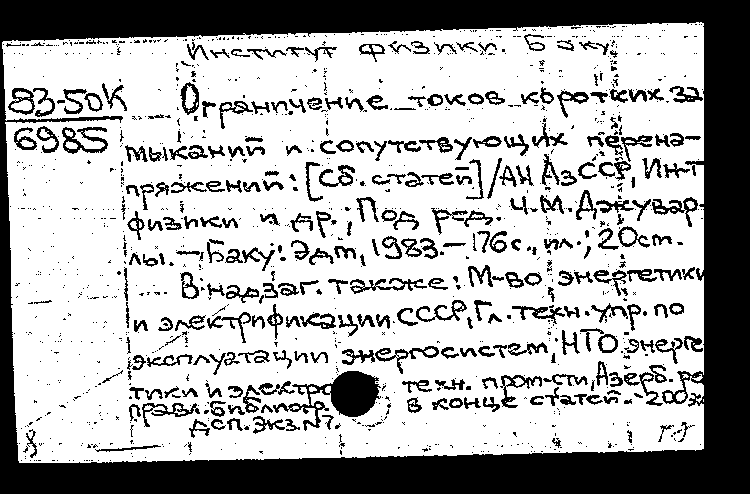 Институт физики. Баку
83-50К
6985
Ограничение токов коротких за
мыканий и сопутствующих перена-
пряжений: [Сб. статей]/АН АзССР, Ин-т
физики и др.; Под ред. Ч.М. Джувар-
лы. — Баку: Элм, 1983. — 176 с., ил.; 20 cm.
В надзаг. также: М-во энергетики
и электрификации СССР, Гл. техн. упр. по
эксплуатации энергосистем, НТО энерге
тики и электро техн. пром-сти, Азерб. ре
правл. Библиогр. в конце статей. - 200
ДСП. Экз. №7.
8